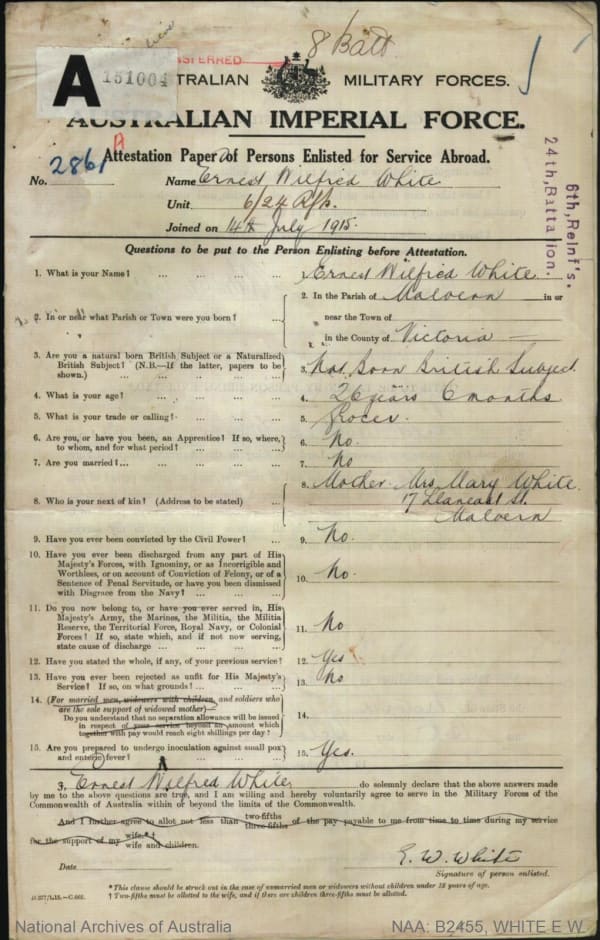 8 Batt
TRANSFERRED
A 151004
AUSTRALIAN MILITARY FORCES.
AUSTRALIAN IMPERIAL FORCE.
A
Attestation Paper of Persons Enlisted for Service Abroad.
No. 2861 Name Ernest Wilfred White
Unit 6/24 Rfts.
Joined on 14th July 1915.
6th, Reinf's.
24th, Battalion.
Questions to be put to the Person Enlisting before Attestation.
1. What is your Name? ... ... ... ... Ernest Wilfred White
2. In or near what Parish or Town were you born? ... ...
2. In the Parish of Malvern in or
near the Town of
in the County of Victoria
3. Are you a natural born British Subject or a Naturalized
British Subject? (N.B.—If the latter, papers to be
shown.) ... ... ... ...
3. Nat. Born British Subject
4. What is your age? ... ... ... ... 4. 26 years 6 months
5. What is your trade or calling? ... ... ... 5. Grocer.
6. Are you, or have you been, an Apprentice? If so, where,
to whom, and for what period? ... ... ...
6. No.
7. Are you married? ... ... ... ... 7. No
8. Who is your next of kin? (Address to be stated) ...
8. Mother. Mrs Mary White.
17 Llaneast St.
Malvern
9. Have you ever been convicted by the Civil Power? ... 9. No.
10. Have you ever been discharged from any part of His
Majesty's Forces, with Ignominy, or as Incorrigible and
Worthless, or on account of Conviction of Felony, or of a
Sentence of Penal Servitude, or have you been dismissed
with Disgrace from the Navy? ... ... ...
10. No.
11. Do you now belong to, or have you ever served in, His
Majesty's Army, the Marines, the Militia, the Militia
Reserve, the Territorial Force, Royal Navy, or Colonial
Forces? If so, state which, and if not now serving,
state cause of discharge ... ... ...
11. No
12. Have you stated the whole, if any, of your previous service? 12. Yes
13. Have you ever been rejected as unfit for His Majesty's
Service? If so, on what grounds? ... ... ...
13. No
14. (For married men, widowers with children, and soldiers who
are the sole support of widowed mother)—
Do you understand that no separation allowance will be issued
in respect of your service beyond an amount which
together with pay would reach eight shillings per day?
14.
15. Are you prepared to undergo inoculation against small pox
and enteric fever? ... ... ... ...
15. Yes.
I, Ernest Wilfred White, do solemnly declare that the above answers made
by me to the above questions are true, and I am willing and hereby voluntarily agree to serve in the Military Forces of the
Commonwealth of Australia within or beyond the limits of the Commonwealth.
And I further agree to allot not less than two-fifths three-fifths of the pay payable to me from time to time during my service
for the support of my wife.*† wife and children.
E. W. White
Date
Signature of person enlisted.
* This clause should be struck out in the case of unmarried men or widowers without children under 18 years of age.
† Two-fifths must be allotted to the wife, and if there are children three-fifths must be allotted.
National Archives of Australia
NAA: B2455, WHITE E W